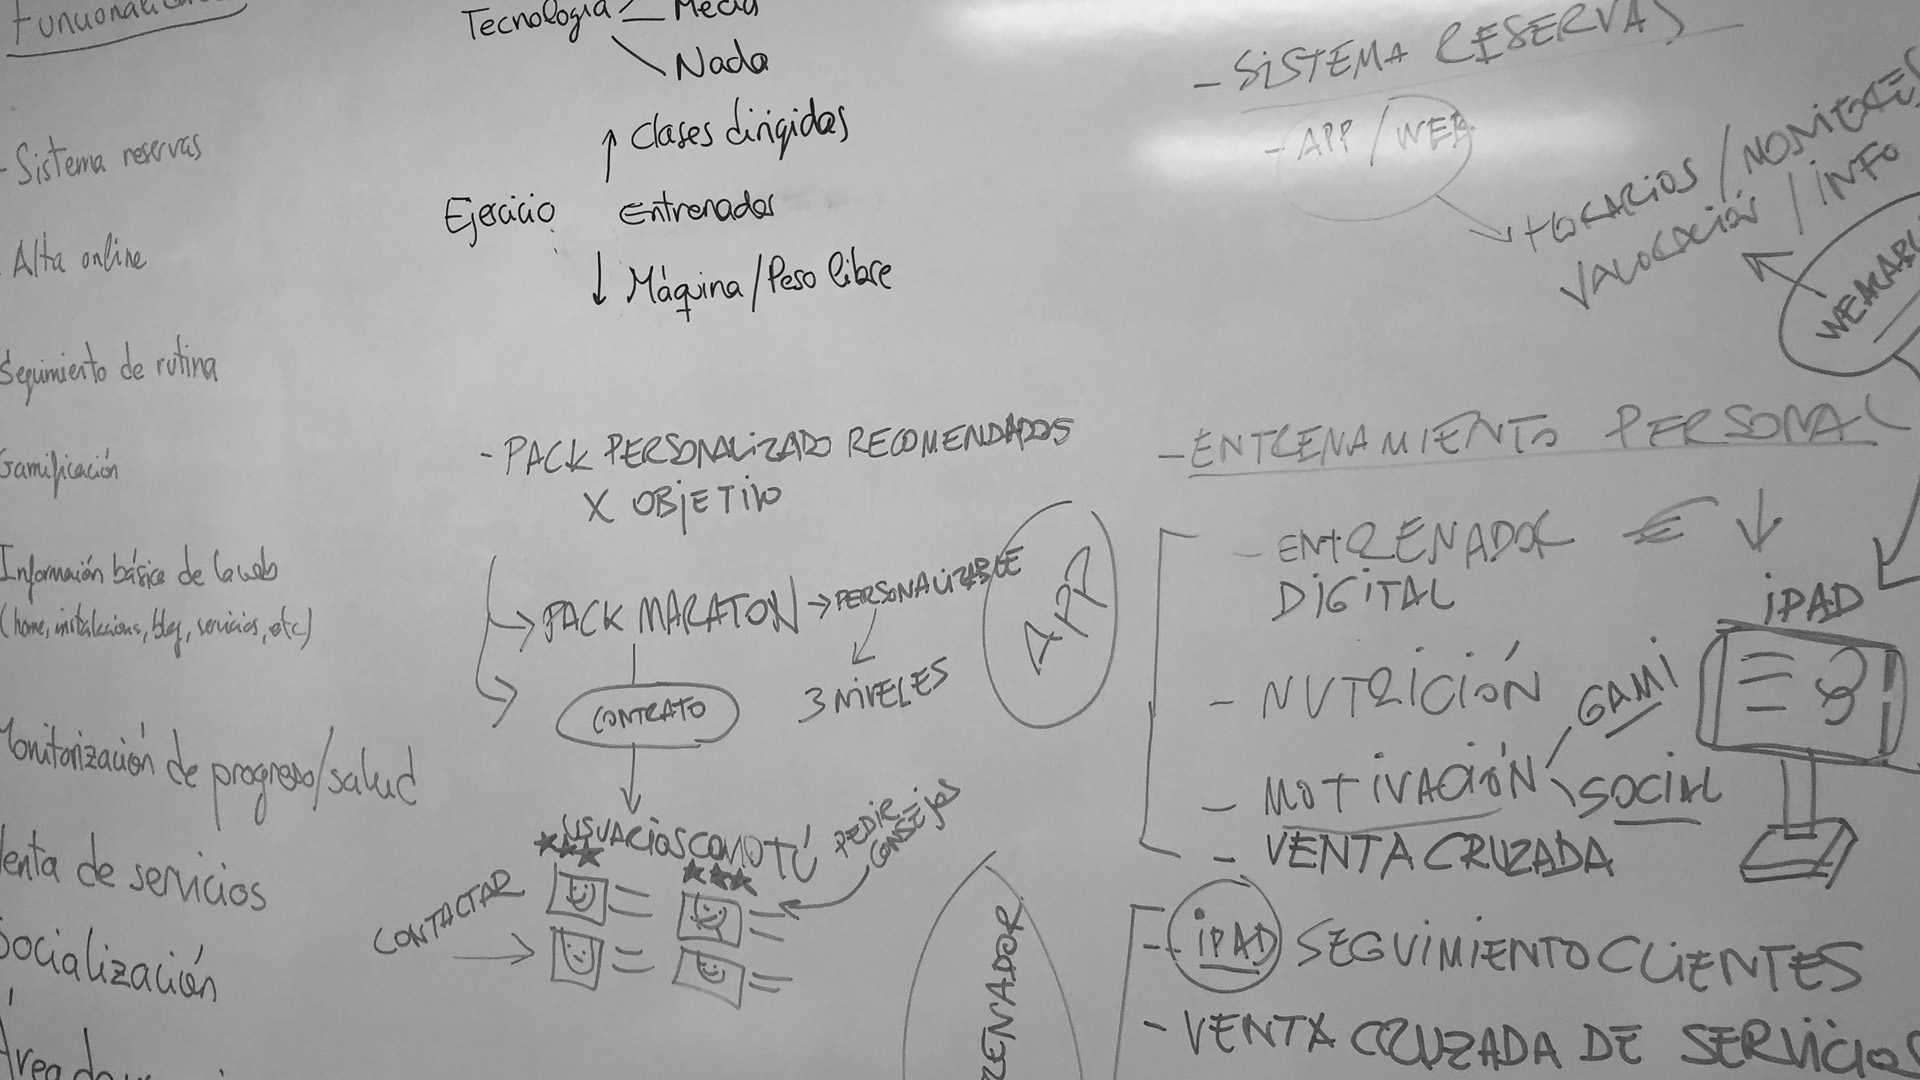 - Sistema reservas
Alta online
Seguimiento de rutina
Gamificación
Información básica de la web
(home, instalaciones, blog, servicios, etc)
Monitorización de progreso/salud
Venta de servicios
Socialización
Tecnología
Media
Nada
Ejercicio
↑ Clases dirigidas
Entrenador
↓ Máquina/Peso libre
- PACK PERSONALIZADO RECOMENDADOS
X OBJETIVO
→ PACK MARATON → PERSONALIZABLE
3 NIVELES
CONTRATO
USUARIOS COMO TÚ
PEDIR
CONSEJOS
CONTACTAR
APP
- SISTEMA RESERVAS
- APP / WEB
HORARIOS /
VALORACIÓN / INFO
- ENTRENAMIENTO PERSONAL
- ENTRENADOR € ↓
DIGITAL
iPAD
- NUTRICIÓN
- MOTIVACIÓN
GAMI
SOCIAL
- VENTA CRUZADA
- iPAD SEGUIMIENTO CLIENTES
- VENTA CRUZADA DE SERVICIOS